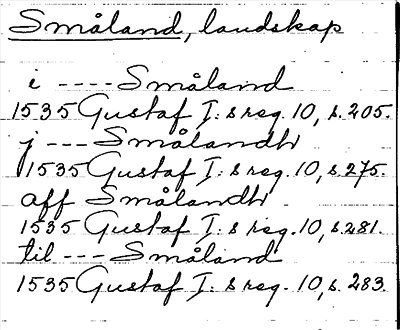 Småland, landskap
i ---- Småland
1535 Gustaf I:s reg. 10, s. 205.
j --- Smålandh
1535 Gustaf I:s reg. 10, s. 275.
aff Smålandh
1535 Gustaf I:s reg. 10, s. 281.
til --- Småland
1535 Gustaf I:s reg. 10, s. 283.